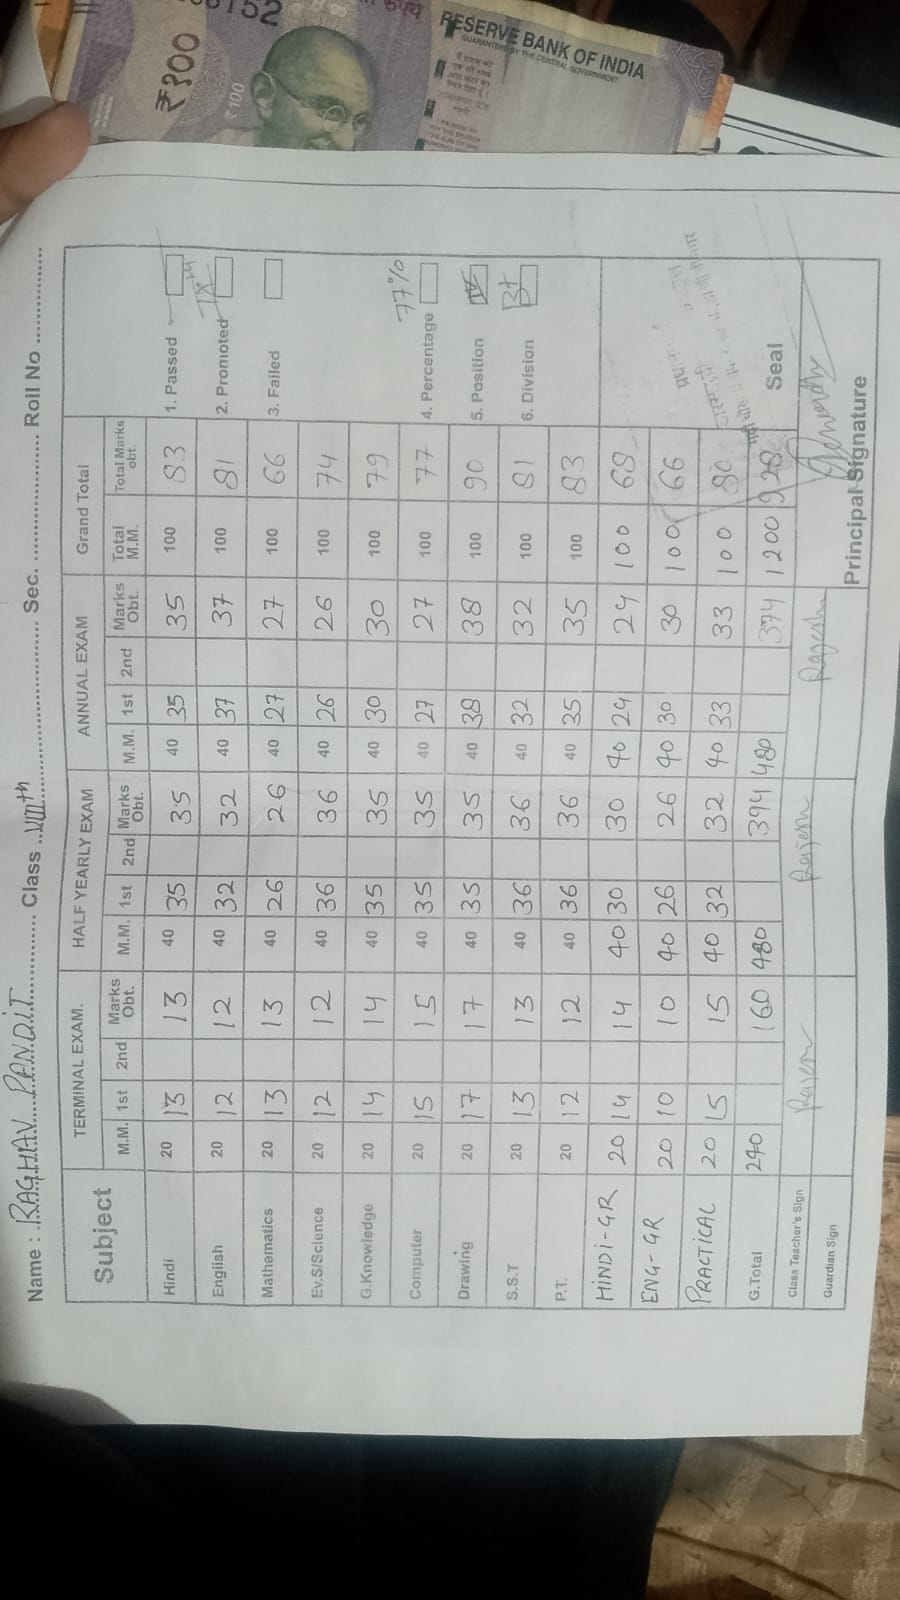 ₹१००
₹100
RESERVE BANK OF INDIA
GUARANTEED BY THE CENTRAL GOVERNMENT
Name : RAGHAV PANDIT Class VIIIth Sec. Roll No
Subject TERMINAL EXAM. HALF YEARLY EXAM ANNUAL EXAM Grand Total
M.M. 1st 2nd Marks Obt. M.M. 1st 2nd Marks Obt. M.M. 1st 2nd Marks Obt. Total M.M. Total Marks obt.
Hindi 20 13 13 40 35 35 40 35 35 100 83 1. Passed
English 20 12 12 40 32 32 40 37 37 100 81 2. Promoted IXth
Mathematics 20 13 13 40 26 26 40 27 27 100 66 3. Failed
Ev.S/Science 20 12 12 40 36 36 40 26 26 100 74
G.Knowledge 20 14 14 40 35 35 40 30 30 100 79
Computer 20 15 15 40 35 35 40 27 27 100 77 4. Percentage 77%
Drawing 20 17 17 40 35 35 40 38 38 100 90 5. Position
S.S.T 20 13 13 40 36 36 40 32 32 100 81 6. Division B+
P.T. 20 12 12 40 36 36 40 35 35 100 83
HINDI-GR 20 14 14 40 30 30 40 24 24 100 68
ENG-GR 20 10 10 40 26 26 40 30 30 100 66
PRACTICAL 20 15 15 40 32 32 40 33 33 100 80
G.Total 240 160 480 394 480 374 1200 928 Seal
Class Teacher's Sign
Guardian Sign Principal Signature